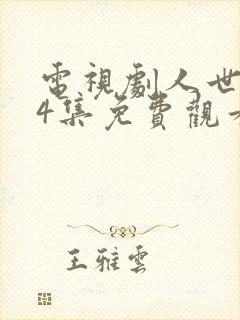 電視劇人世
4集免費觀看
王雅雲